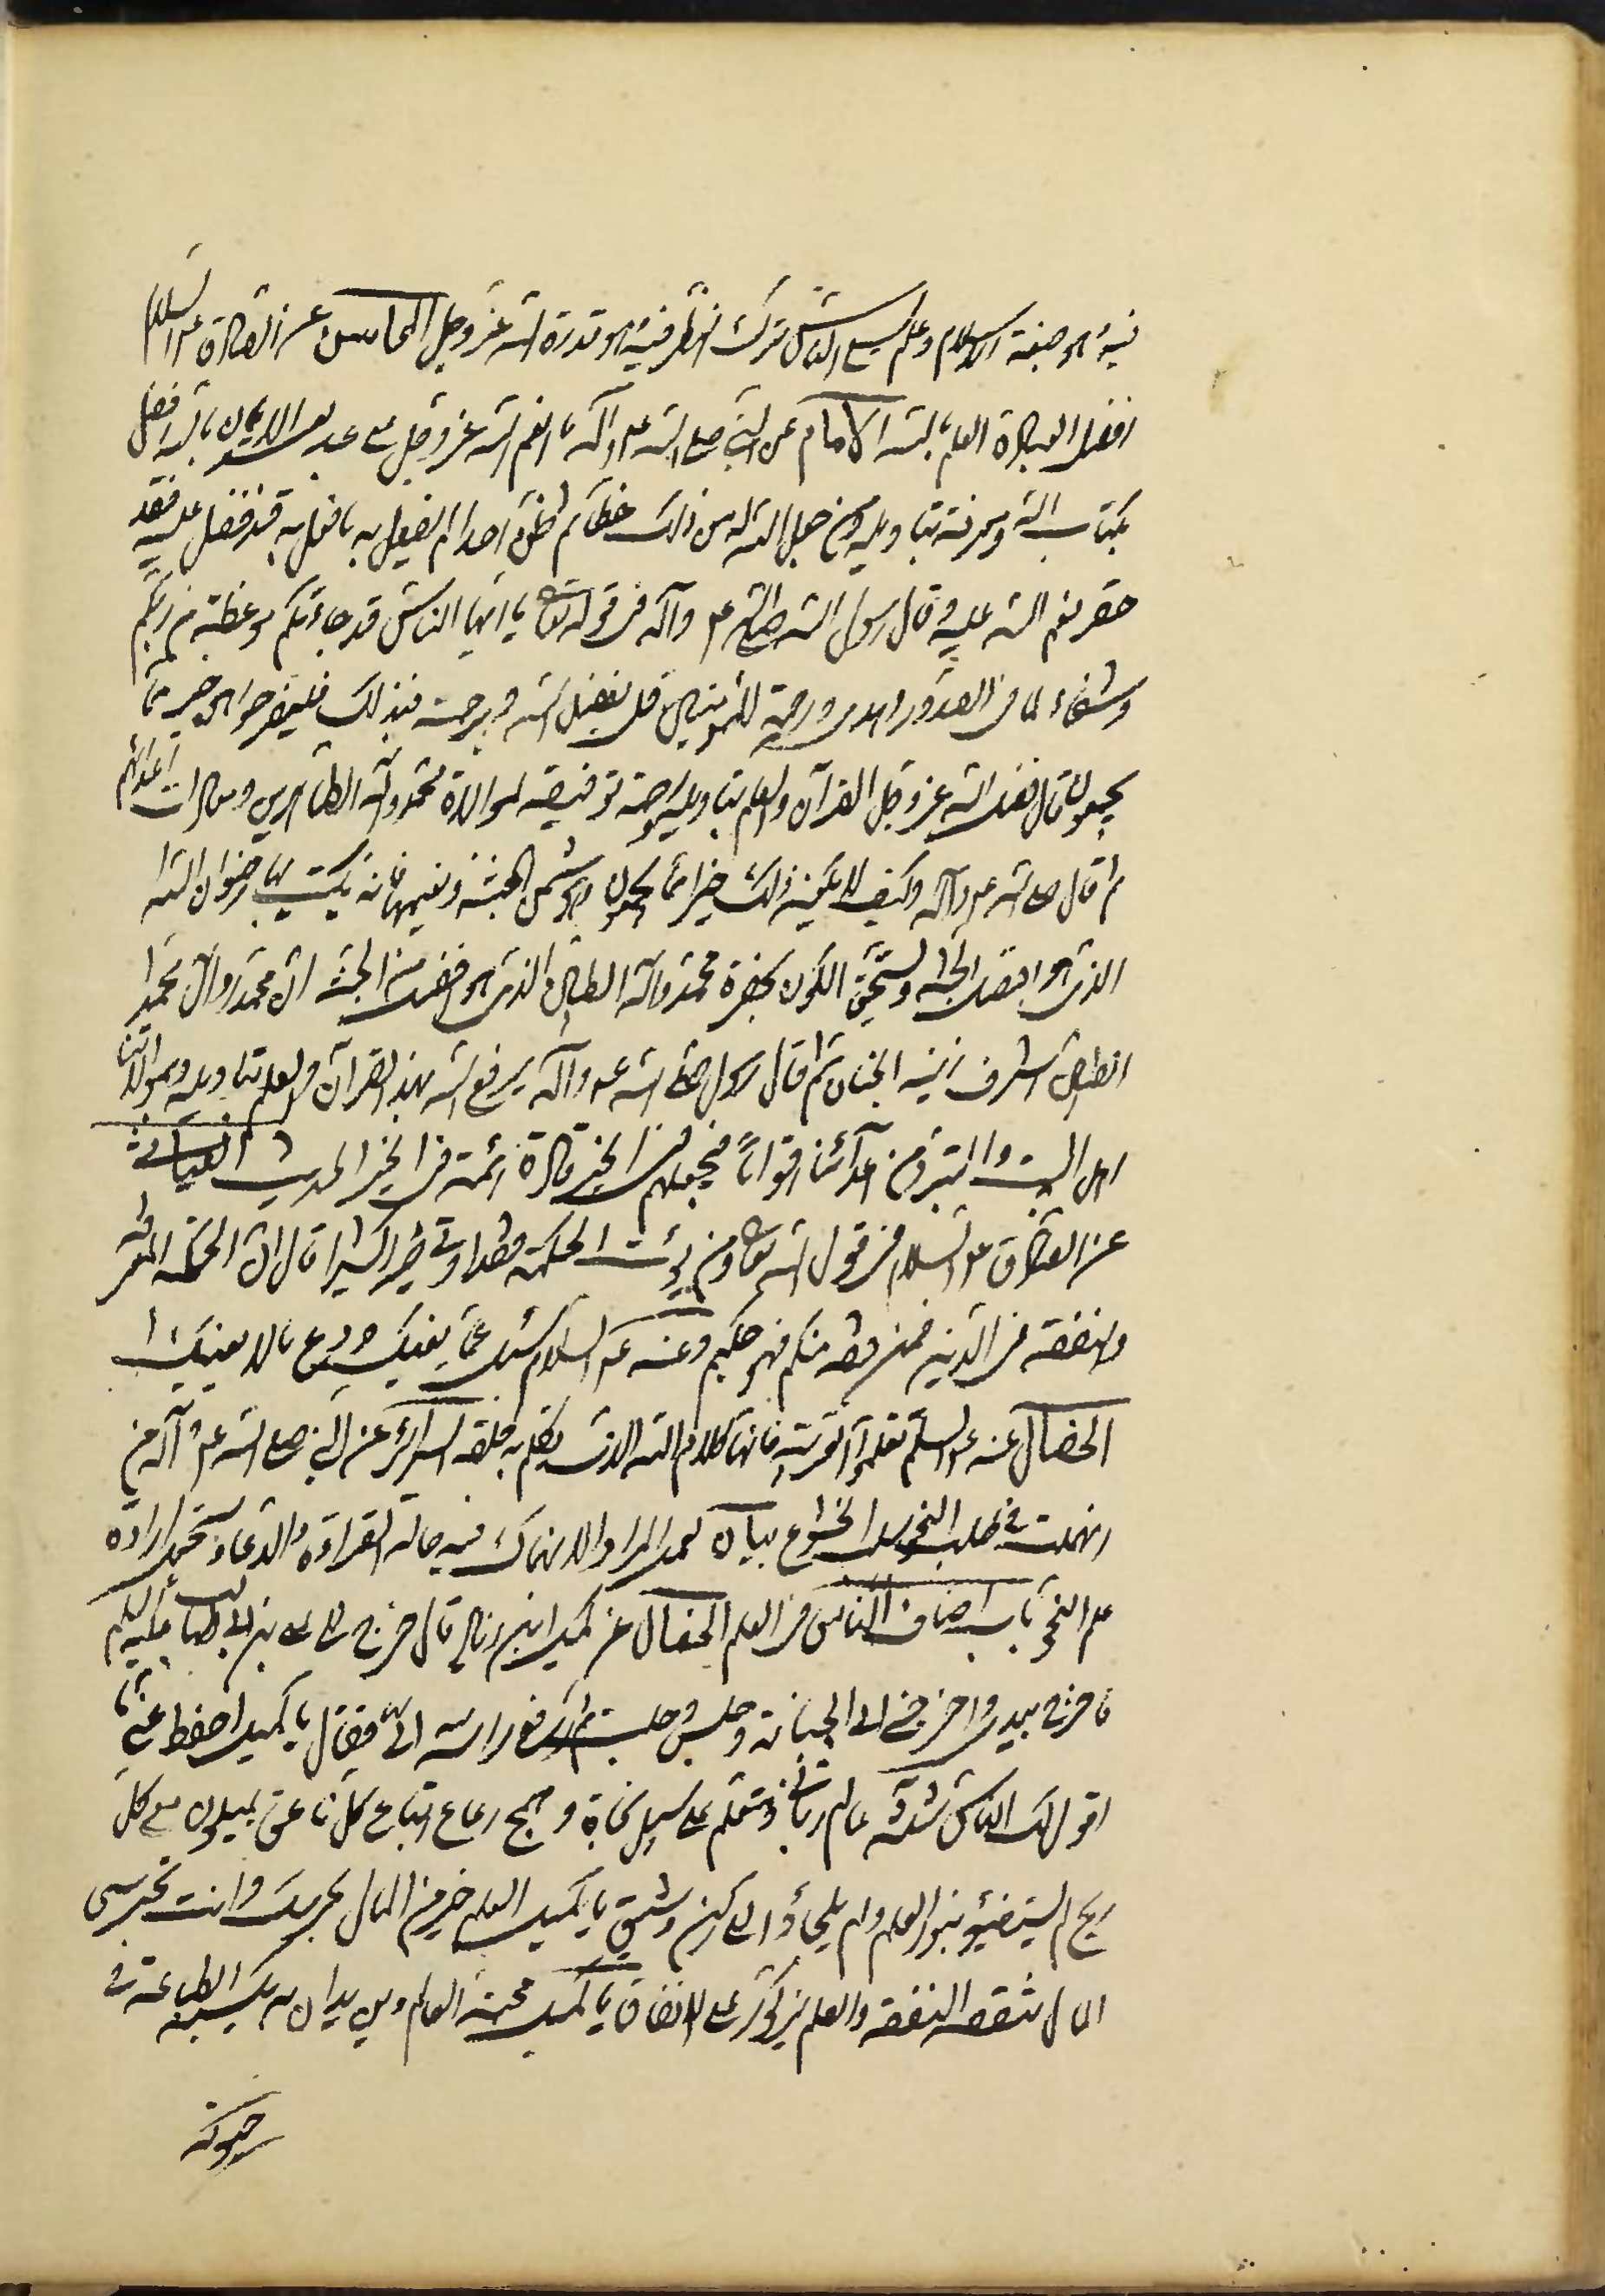 فيه وهو صبغة الاسلام وعلم يسع الناس ترك النظر فيه وهو قدرة الله عز وجل المحاسن عن الصادق عليه السلام
افضل العبادة العلم بالله الامام عن النبي صلى الله عليه وآله ما انعم الله عز وجل على عبد بعد الايمان بالله افضل
بكتاب الله ومعرفة بتاويله ومن جعل الله له من ذلك حظا ثم ظن ان احدا لم يفعل به ما فعل به قد فضل عليه فقد
حقر نعم الله عليه وقال رسول الله صلى الله عليه وآله في قوله تعالى يا ايها الناس قد جاءتكم موعظة من ربكم
وشفاء لما في الصدور وهدى ورحمة للمؤمنين قل بفضل الله وبرحمته فبذلك فليفرحوا هو خير مما
يجمعون قال فضل الله عز وجل القرآن والعلم بتاويله ورحمته توفيقه لموالاة محمد وآله الطاهرين ومعادات اعدائهم
ثم قال صلى الله عليه وآله وكيف لا يكون ذلك خيرا مما يجمعون وهو ثمن الجنة ونعيمها فانه يكتسب بها رضوان الله
الذي هو افضل من الجنة ويستحق الكون بحضرة محمد وآله الطيبين الذي هو افضل من الجنة ان محمدا وآل محمد
الطيبين اشرف زينة الجنان ثم قال رسول الله صلى الله عليه وآله يرفع الله بهذا القرآن والعلم بتاويله وبموالاتنا
اهل البيت والتبري من اعدائنا اقواما فيجعلهم في الخير قادة ائمة في الخير الحديث العياشي
عن الصادق عليه السلام في قول الله تعالى ومن يؤت الحكمة فقد اوتي خيرا كثيرا قال ان الحكمة المعرفة
والتفقه في الدين فمن فقه منكم فهو حكيم وعنه عليه السلام سئل عما يعنيك ودع ما لا يعنيك
الخصال عنه عليه السلام تعلموا العربية فانها كلام الله الذي تكلم به خلقه السرائر عن النبي صلى الله عليه وآله من
انهمك في طلب النحو سلب الخشوع بيان لعل المراد الانهماك فيه حالة القراءة والدعاء ويحتمل ارادة
علم النحو باب اصناف الناس في العلم الخصال عن كميل ابن زياد قال خرج الى علي بن ابي طالب عليه السلم
فاخذ بيدي واخرجني الى الجبانة وجلس وجلست ثم رفع راسه الي فقال يا كميل احفظ عني ما
اقول لك الناس ثلثة عالم رباني ومتعلم على سبيل نجاة وهمج رعاع اتباع كل ناعق يميلون مع كل
ريح لم يستضيئوا بنور العلم ولم يلجاؤا الى ركن وثيق يا كميل العلم خير من المال يحرسك وانت تحرس
المال تنقصه النفقة والعلم يزكو على الانفاق يا كميل محبة العالم دين يدان به يكسبه الطاعة في
حيوته